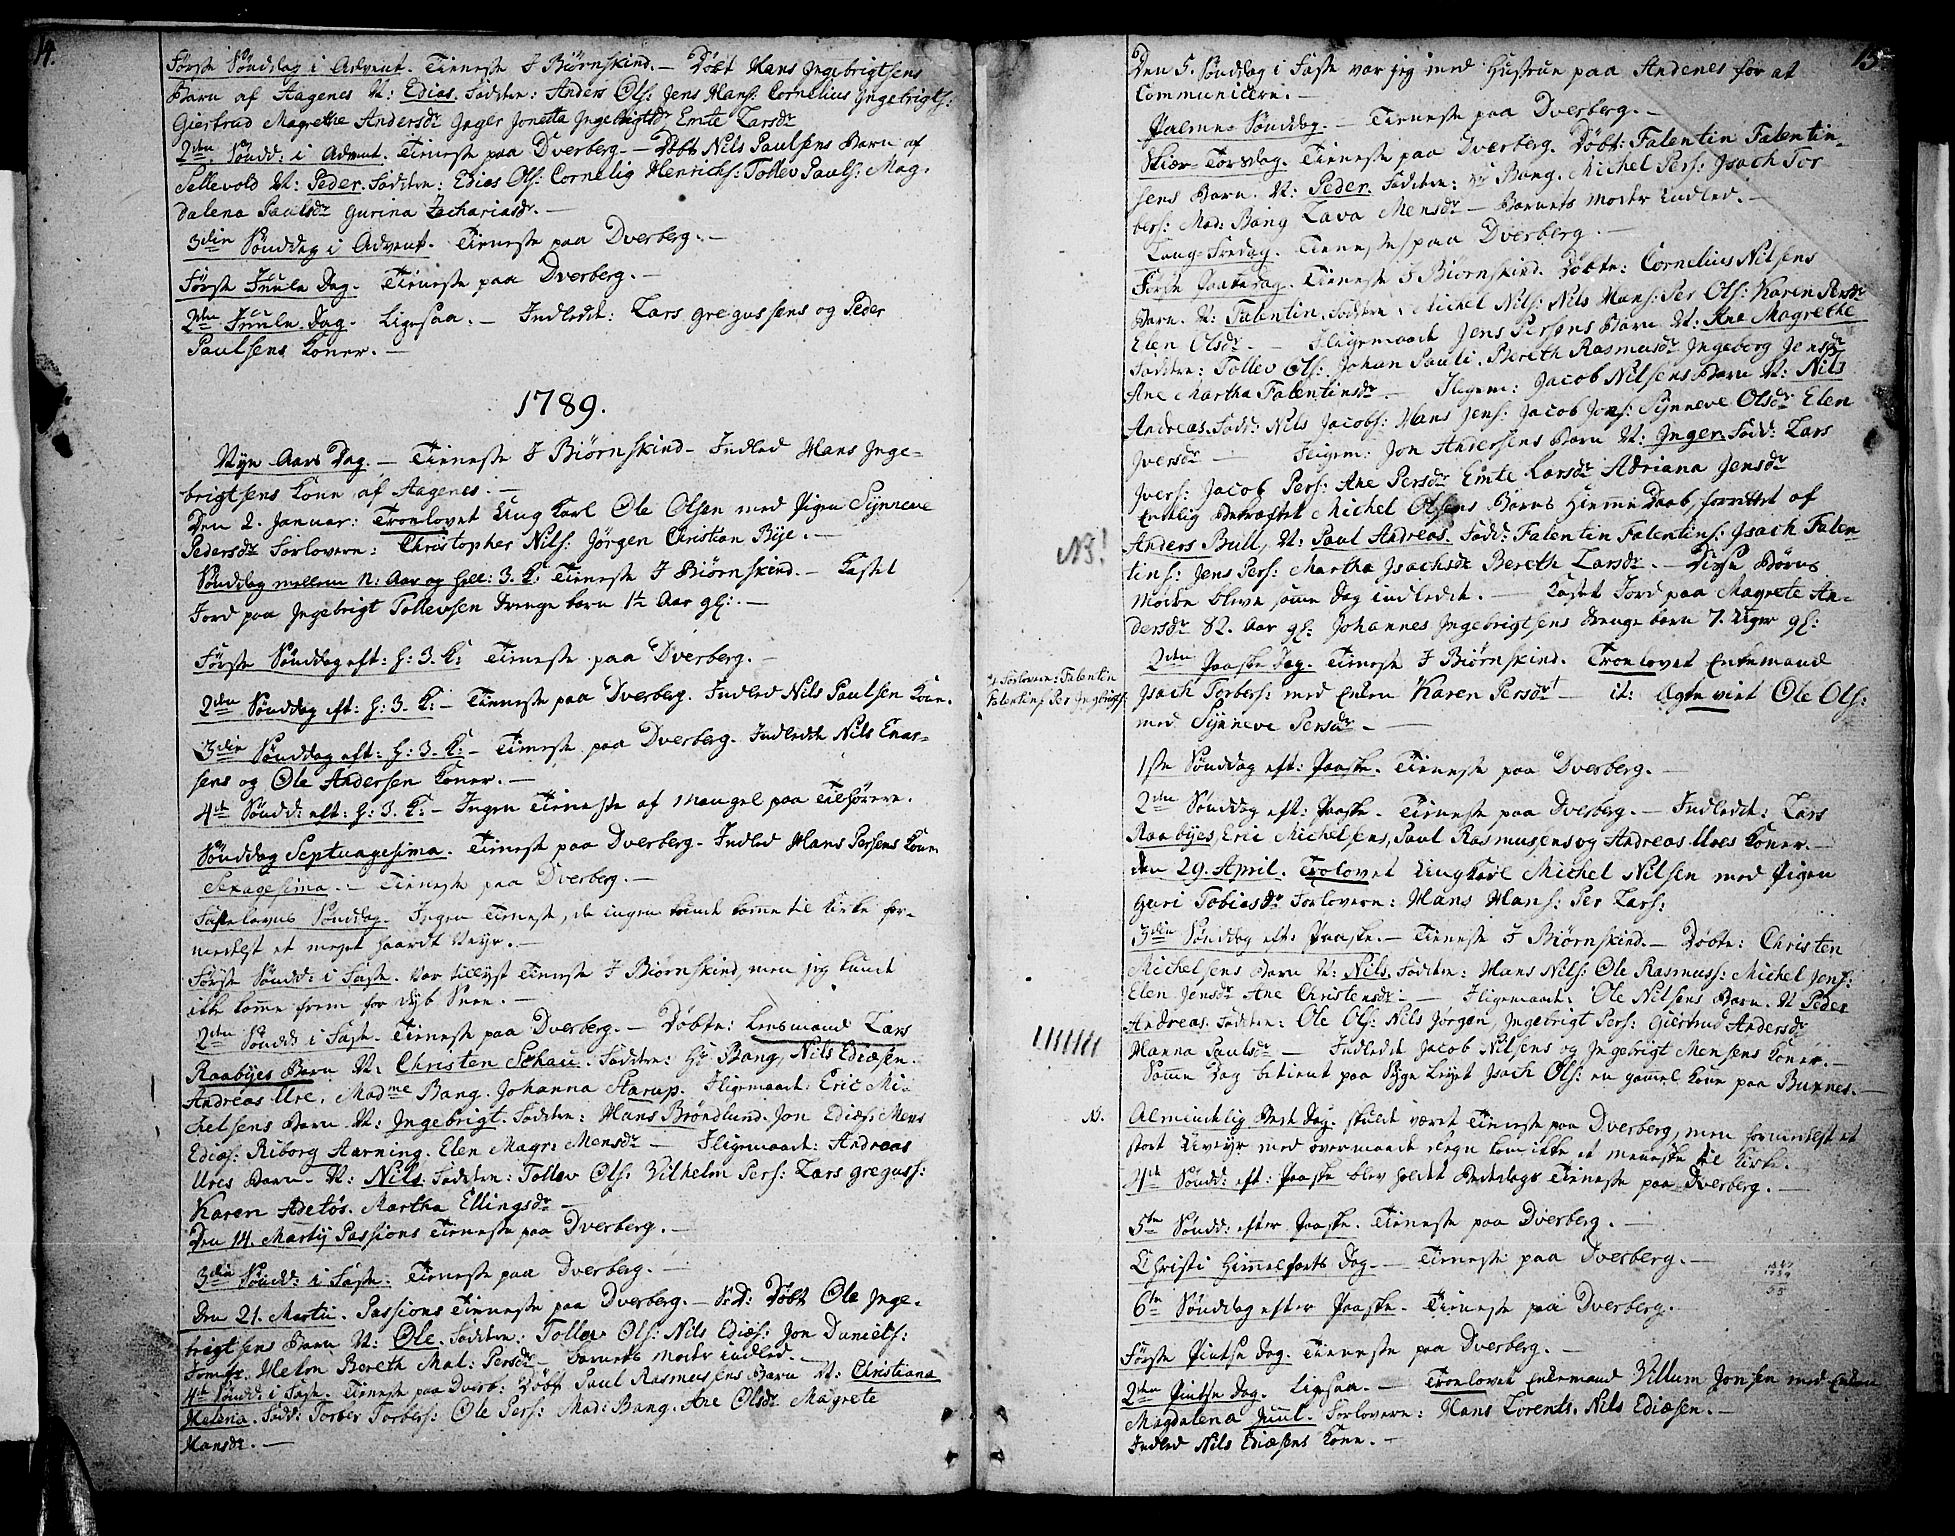 14.
Første Sønddag i Advent. Tieneste I Biørnskind. — Døbt Hans Jngebrigtsens
Barn af Aagenes N: Edias. Fadden: Anders Ols: Jens Hans: Cornelius Jngebrigts:
Giertrud Magrethe Andersdr Jnger Joneta Jngebrigtsdr Emte Larsdr
2den Søndd: i Advent. Tieneste paa Dverberg. — Døbt Nils Paulsens Barn af
Sellevold N: Peder. Fadden: Edias Ols: Cornelig Henrichs: Tollev Pauls: Mag-
dalena Paulsdr Gurina Zachariasdr. —
3die Sønddag i Advent. Tieneste paa Dverberg. —
Første Juule Dag. Tieneste paa Dverberg. —
2den Juule Dag. Ligesaa. — Jndledt: Lars Gregussens og Peder
Paulsens Koner. —
1789.
Nyn Aars Dag. — Tieneste I Biørnskind — Jndled Hans Jnge-
brigtsens Kone af Aagenes. —
Den 2. Januar: Troelovet Ung Karl Ole Olsen med Pigen Synneve
Pedersdr Forlovere: Christopher Nils: Jørgen Christian Bye. —
Sønddag mellem N: Aar og Hell: 3. K: Tieneste I Biørnskind. — Kastet
Jord paa Jngebrigt Tollevsen Drenge barn 1½ Aar gl: —
Første Sønddag eft: H: 3. K: Tieneste paa Dverberg. —
2den Sønddag eft: H: 3. K: — Tieneste paa Dverberg. Jndled Nils Paulsen Kone.
3die Sønddag eft: H: 3. K: — Tieneste paa Dverberg. Jndledte Nils Enas-
sens og Ole Andersen Koner. —
4de Søndd: eft: H: 3. K: — Jngen Tieneste af Mangel paa Tilhørere.
Sønddag Septuagesima. Tieneste paa Dverberg. Jndled Hans Persens Kone
Sexagesima. — Tieneste paa Dverberg. —
Fastelavns Sønddag. Jngen Tieneste, da ingen kunde komme til Kirke for-
medelst et meget haardt Veyr. —
Første Søndd: i Faste. Var tillyst Tieneste I Biørnskind, men jeg kunde
ikke komme frem for dyb Snee. —
2den Søndd: i Faste. Tieneste paa Dverberg. — Døbte: Lensmand Lars
Raabyes Barn N: Christen Schau. Fadden: Hr Bang, Nils Ediæsen.
Andreas Ure, Madme Bang. Johanna Starup. Jligemaade: Eric Mi-
chelsens Barn N: Jngebrigt. Fadden: Hans Brøndlund. Jon Ediæs: Mens
Ediæs: Riborg Aarning. Elen Magr: Mensdr — Jligemaade: Andreas
Ures Barn N: Nils. Fadden: Tollev Ols: Vilhelm Pers: Lars Greguss:
Karen Adetøs. Martha Ellingsdr —
Den 14. Martij Passions Tieneste paa Dverberg. —
3die Søndd: i Faste: Tieneste paa Dverberg. —
Den 21. Martii. Passions Tieneste paa Dverberg. — S: D: Døbt Ole Jnge-
brigtsens Barn N: Ole. Fadden: Tollev Ols: Nils Ediæs: Jon Daniels:
Jomfr. Helen Bereth Mal: Persdr — Barnets Moder indled. —
4de Søndd: i Faste. Tieneste paa Dverb: Døbt Paul Rasmusens Barn N: Christiana
Helena. Fadd: Torber Torbers: Ole Pers: Mad: Bang. Ane Olsdr Magrete
Hansdr. —
15
Den 5. Sønddag i Faste var jeg med Hustrue paa Andenes for at
Communicere. —
Palme Sønddag. — Tieneste paa Dverberg. —
Skiær-Torsdag. Tieneste paa Dverberg. Døbt: Falentin Falentin-
sens Barn. N: Peder. Fadden: Hr Bang. Michel Pers: Jsach Tor
bers: Mad: Bang Lava Mensdr — Barnets Moder Jndled. —
Lang-Fredag. Tieneste paa Dverberg. —
Første Paaskedag. Tieneste I Biørnskind. Døbte: Cornelius Nilsens
Barn. N: Falentin. Fadden: Michel Nils: Nils Hans: Per Ols: Karen Persdr
Elen Olsdr. — Jligemaade Jens Persens Barn N: Ane Magrethe
Fadden: Tollev Ols: Johan Pauli. Bereth Rasmusdr Jngeborg Jensdr
Ane Martha Falentinsdr — Jligem: Jacob Nilsens Barn N: Nils
Andreas. Fadd: Nils Jacobs: Hans Jens: Jacob Jons: Synneve Olsdr Elen
Jversdr — Jligem: Jon Andersens Barn N: Jnger. Fadd: Lars
Jvers: Jacob Pers: Ane Persdr Emte Larsdr Adriana Jensdr
Endelig Bekræftet Michel Olsens Barns Hiemme Daab forrettet af
NB!
Anders Bull, N: Paul Andreas. Fadd: Falentin Falentins: Jsach Falen
tins: Jens Pers: Martha Jsachsdr Bereth Larsdr. — Disse Børns
Mødre bleve samme Dag indledet. — Kastet Jord paa Magrete An-
dersdr 82. Aar gl: Johannes Jngebrigtsens Drenge barn 7. Uger gl:
2den Paaske Dag. Tieneste I Biørnskind. Troelovet Enkemand
Forlovere: Falentin
Falentins: Per Jngebrigts:
Jsach Torbers: med Enken Karen Persdr — it: Ægte viet Ole Ols:
med Synneve Persdr —
1ste Sønddag eft: Paaske. Tieneste paa Dverberg. —
2den Sønddag eft: Paaske. Tieneste paa Dverberg. — Jndledt: Lars
Raabyes, Eric Michelsens, Paul Rasmusens og Andreas Ures Koner. —
Den 29. April. Trolovet Ung Karl Michel Nilsen med Pigen
Guri Tobiasdr Forlovere: Hans Hans: Per Lars:
3die Sønddag eft: Paaske. — Tieneste I Biørnskind. — Døbte: Christen
Michelsens Barn N: Nils. Fadden: Hans Nils: Ole Rasmuss: Michel Jens:
Elen Jensdr Ane Christensdr — Jligemaade: Ole Nilsens Barn N Peder
Andreas. Fadden: Ole Ols: Nils Jørgen, Jngebrigt Pers: Giertrud Andersdr
Hanna Paulsdr — Jndledt Jacob Nilsens og Jngebrigt Mensens Koner. —
Samme Dag betient paa Syge Leyet Jsach Ols: en gammel Kone paa Buxnes. —
N.
Almindelig Bede Dag. skulde været Tieneste paa Dverberg, men formedelst et
stort Uveyr med overmaade Regn kom ikke et Menneske til Kirke. —
4de Søndd: eft: Paaske blev holdt Bededags Tieneste paa Dverberg. —
5te Søndd: efter Paaske. Tieneste paa Dverberg. —
Christi Himmelfarts Dag. — Tieneste paa Dverberg. —
1847
1789
58
6te Sønddag efter Paaske. Tieneste paa Dverberg. —
Første Pintse Dag. Tieneste paa Dverberg. —
2den Pintse Dag. Ligesaa. — Troelovet Enkemand Villum Jonsen med Enken
Magdalena Juul. Forlovere: Hans Lorents. Nils Ediæsen. —
Jndled Nils Ediæsens Kone. —